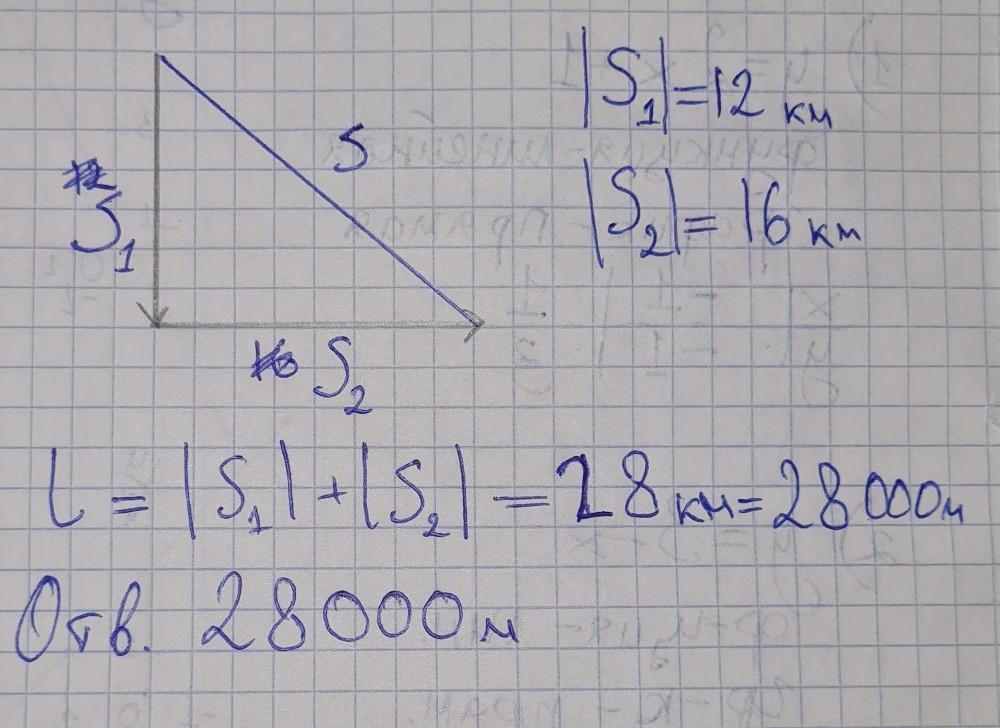 |S₁|=12 км
S
S₁
|S₂|= 16 км
S₂
l = |S₁|+|S₂| = 28 км= 28 000м
Отв. 28 000 м